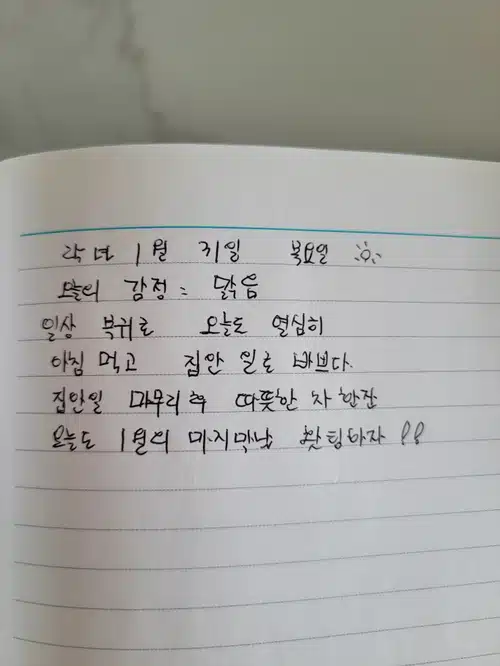 1월 31일 목요일
오늘의 감정: 맑음
일상 복귀로 오늘도 열심히
아침 먹고 집안 일로 바쁘다.
집안일 마무리 후 따뜻한 차 한잔
오늘도 1월의 마지막날 홧팅하자 !!